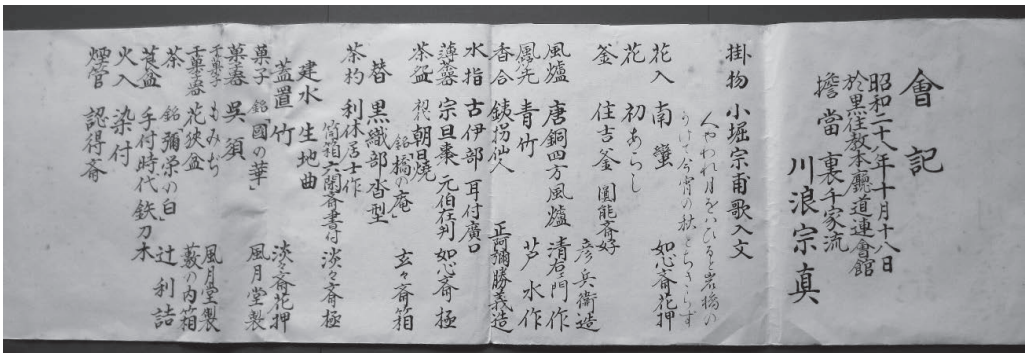 會記
昭和二十八年十月十八日
於黒住教本廳道連會館
擔當 裏千家流
川浪宗真
掛物 小堀宗甫歌入文
花入 南蠻 如心斎花押
花 初あらし
釜 住吉釜 圓能斎好 彦兵衛造
風爐 唐銅四方風爐 清右門作
風先 青竹 芦水作
香合 鉄拐仙人 正阿彌勝義造
水指 古伊部 耳付廣口
薄器 宗旦棗 元伯在判 如心斎極
茶盌 朝日焼 銘「橋の庵」 玄々斎箱
替 黒織部沓型
茶杓 利休居士作 筒箱六閑斎書付 淡々斎極
建水 生地曲
蓋置 竹 淡々斎花押
菓子 銘「國の華」 風月堂製
菓器 呉須
干菓子 もみぢ 風月堂製
干菓器 花狭盆 藪の内箱
茶 銘 彌栄の白 辻利詰
莨盆 手付時代鉄刀木
火入 染付
煙管 認得斎